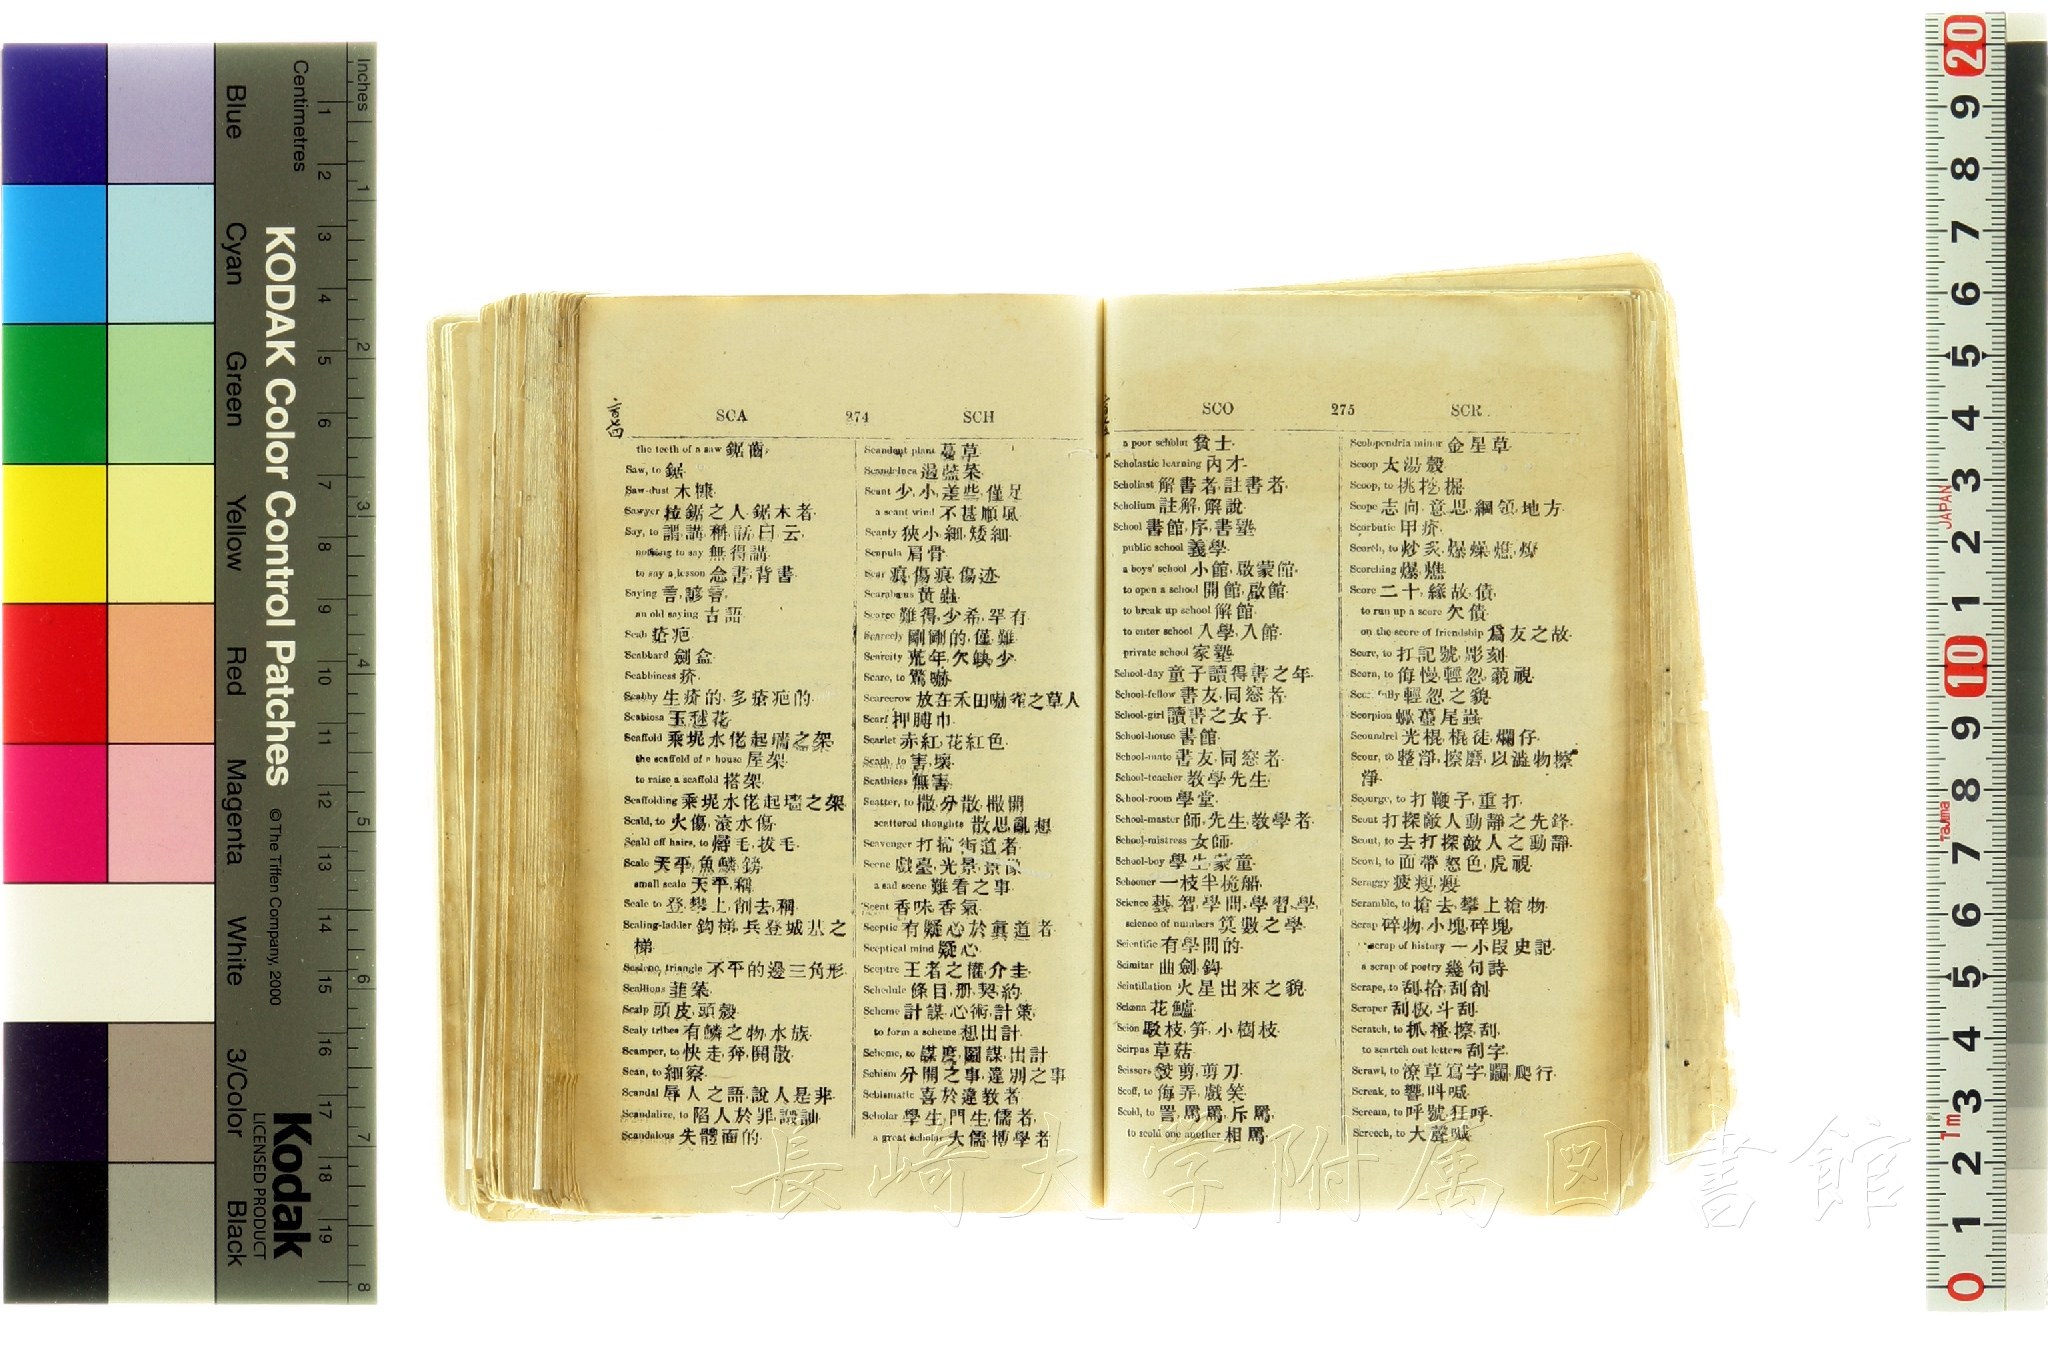 SCA 274 SCH
the teeth of a saw 鋸齒.
Saw, to 鋸.
Saw-dust 木糠.
Sawyer 拉鋸之人, 鋸木者.
Say, to 謂, 講, 稱, 話, 曰, 云,
nothing to say 無得講.
to say a lesson 念書, 背書
Saying 言, 諺言,
an old saying 古語.
Scab 瘡疤
Scabbard 劍盒.
Scabbiness 疥.
Scabby 生疥的, 多瘡疤的.
Scabiosa 玉毬花.
Scaffold 乘坭水佬起墻之架.
the scaffold of a house 屋架.
to raise a scaffold 搭架.
Scaffolding 乘坭水佬起墻之架
Scald, to 火傷, 滾水傷.
Scald off hairs, to 燖毛, 拔毛.
Scale 天平, 魚鱗, 鎊.
small scale 天平, 稱
Scale to 登, 攀上, 削去, 稱.
Scaling-ladder 鈎梯, 兵登城之
梯.
Scalene, triangle 不平的邊三角形.
Scallions 韮菜.
Scalp 頭皮, 頭殼.
Scaly tribes 有鱗之物, 水族.
Scamper, to 快走, 奔, 閧散.
Scan, to 細察.
Scandal 辱人之語, 說人是非.
Scandalize, to 陷人於罪, 譭訕
Scandalous 失體面的.
Scandent plant 蔓草.
Scant 少, 小, 差些, 僅足
a scant wind 不甚順風
Scanty 狹小, 細, 矮細.
Scapula 肩骨.
Scar 痕, 傷痕, 傷迹.
Scarabæus 黃蟲.
Scarce 難得, 少希, 罕有.
Scarcely 剛剛的, 僅, 難.
Scarcity 荒年, 欠缺, 少.
Scare, to 驚嚇.
Scarecrow 放在禾田嚇雀之草人
Scarf 押膊巾.
Scarlet 赤紅, 花紅色.
Scath, to 害, 壞.
Scathless 無害.
Scatter, to 撒, 分散, 撒開
scattered thoughts 散思, 亂想
Scavenger 打掃街道者.
Scene 戲臺, 光景, 景像
a sad scene 難看之事.
Scent 香味, 香氣.
Sceptic 有疑心於眞道者.
Sceptical mind 疑心.
Sceptre 王者之權, 介圭.
Schedule 條目, 册, 契約.
Scheme 計謀, 心術, 計策,
to form a scheme 想出計.
Scheme, to 謀度, 圖謀, 出計
Schism 分開之事, 違別之事
Schismatic 喜於違教者.
Scholar 學生, 門生, 儒者,
a great scholar 大儒, 博學者
SCO 275 SCR.
a poor scholar 貧士.
Scholastic learning 丙才.
Scholiast 解書者, 註書者.
Scholium 註解, 解說.
School 書館, 序, 書塾.
public school 義學.
a boys' school 小館, 啟蒙館.
to open a school 開館, 啟館.
to break up school 解館.
to enter school 入學, 入館.
private school 家塾.
School-day 童子讀得書之年.
School-fellow 書友, 同窓者.
School-girl 讀書之女子.
School-house 書館.
School-mate 書友, 同窓者.
School-teacher 教學先生.
School-room 學堂.
School-master 師, 先生, 教學者.
School-mistress 女師.
School-boy 學生, 蒙童.
Schooner 一枝半桅船.
Science 藝, 智, 學問, 學習, 學,
science of numbers 筭數之學.
Scientific 有學問的.
Scimitar 曲劍, 鈎
Scintillation 火星出來之貌.
Sciæna 花鱸.
Scion 駁枝, 笋, 小樹枝.
Scirpus 草菇.
Scissors 鉸剪, 剪刀.
Scoff, to 侮弄, 戲笑.
Scold, to 詈, 罵, 罵, 斥罵.
to scold one another 相罵.
Scolopendria minor 金星草.
Scoop 大湯殼.
Scoop, to 挑挖, 掘.
Scope 志向, 意思, 綱領, 地方.
Scorbutic 甲疥.
Scorch, to 炒, 炙, 爆, 燥, 燋, 燎
Scorching 爆, 燋
Score 二十, 緣故, 債,
to run up a score 欠債.
on the score of friendship 爲友之故.
Score, to 打記號, 彫刻.
Scorn, to 侮慢, 輕忽, 藐視.
輕忽之貌.
Scorpion 蠍, 蠆尾蟲.
Scoundrel 光棍, 棍徒, 爛仔.
Scour, to 整淨, 擦磨, 以溢物擦
淨.
Scourge, to 打鞭子, 重打.
Scout 打探敵人動靜之先鋒.
Scout, to 去打探敵人之動靜.
Scowl, to 面帶怒色, 虎視.
Scraggy 疲瘦, 瘦.
Scramble, to 搶去, 攀上, 搶物.
Scrap 碎物, 小塊, 碎塊,
scrap of history 一小段史記.
a scrap of poetry 幾句詩.
Scrape, to 刮, 拾, 刮削
Scraper 刮板, 斗刮.
Scratch, to 抓, 搔, 擦, 刮,
to scartch out letters 刮字.
Scrawl, to 潦草寫字, 躝, 爬行.
Screak, to 響, 呌喊.
Scream, to 呼號, 狂呼.
Screech, to 大聲喊.
Inches
Centimetres
KODAK Color Control Patches
© The Tiffen Company, 2000
Kodak
LICENSED PRODUCT
Blue Cyan Green Yellow Red Magenta White 3/Color Black
1 2 3 4 5 6 7 8
1 2 3 4 5 6 7 8 9 10 11 12 13 14 15 16 17 18 19
20 9 8 7 6 5 4 3 2 1 10 9 8 7 6 5 4 3 2 1 0
JAPAN
Tajima
1m
長崎大学附属図書館